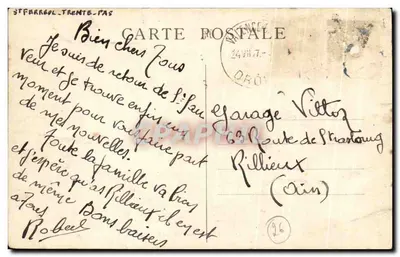 ST FERREOL_TRENTE_PAS
CARTE POSTALE
Bien chers Tous
Je suis de retour de St Jean
Veur et je trouve enfin un
moment pour vous faire part
de mes nouvelles.
Toute la famille va bien
et j'espère qu'à Rillieux il en est
de même Bons baisers
à Tous
Robert
24 VII.
DRÔME
Garage Vittoz
63 Route de Strasbourg
Rillieux
(Ain)
26